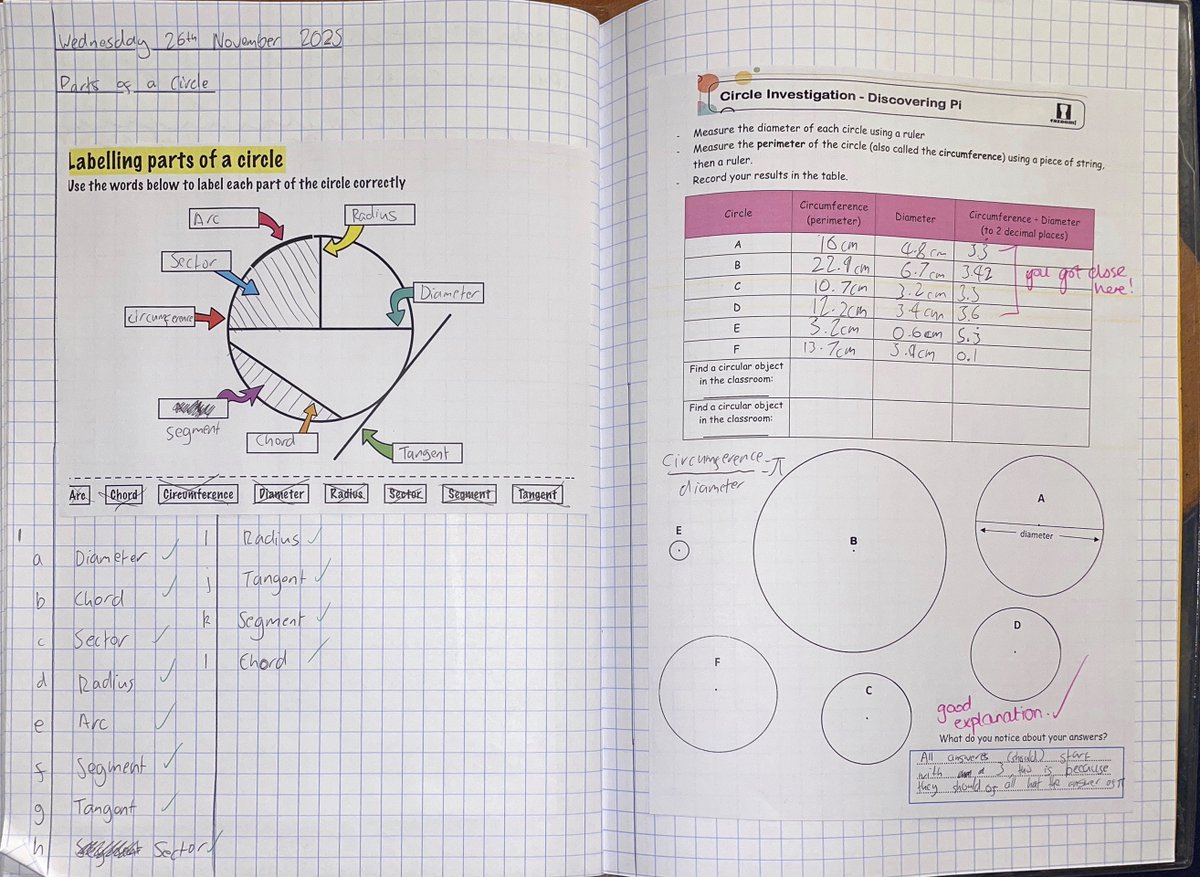 Wednesday 26th November 2025
Parts of a Circle
Labelling parts of a circle
Use the words below to label each part of the circle correctly
Arc
Radius
Sector
Diameter
Circumference
Segment
Chord
Tangent
Arc Chord Circumference Diameter Radius Sector Segment Tangent
1
a Diameter ✓
b Chord ✓
c Sector ✓
d Radius ✓
e Arc ✓
f Segment ✓
g Tangent ✓
h Sector ✓
I Radius ✓
j Tangent ✓
k Segment ✓
l Chord ✓
Circle Investigation - Discovering Pi
- Measure the diameter of each circle using a ruler
- Measure the perimeter of the circle (also called the circumference) using a piece of string,
then a ruler.
- Record your results in the table.
Circle Circumference (perimeter) Diameter Circumference ÷ Diameter (to 2 decimal places)
A 16cm 4.8cm 3.3
B 22.9cm 6.7cm 3.42
C 10.7cm 3.2cm 3.3
D 12.2cm 3.4cm 3.6
E 3.2cm 0.6cm 5.3
F 13.7cm 3.9cm 0.1
you got close
here!
Find a circular object
in the classroom:
Find a circular object
in the classroom:
Circumference = π
diameter
A
diameter
E
B
D
F
C
good
explanation. ✓
What do you notice about your answers?
All answers (should) start
with a 3, this is because
they should of all had the answer as π